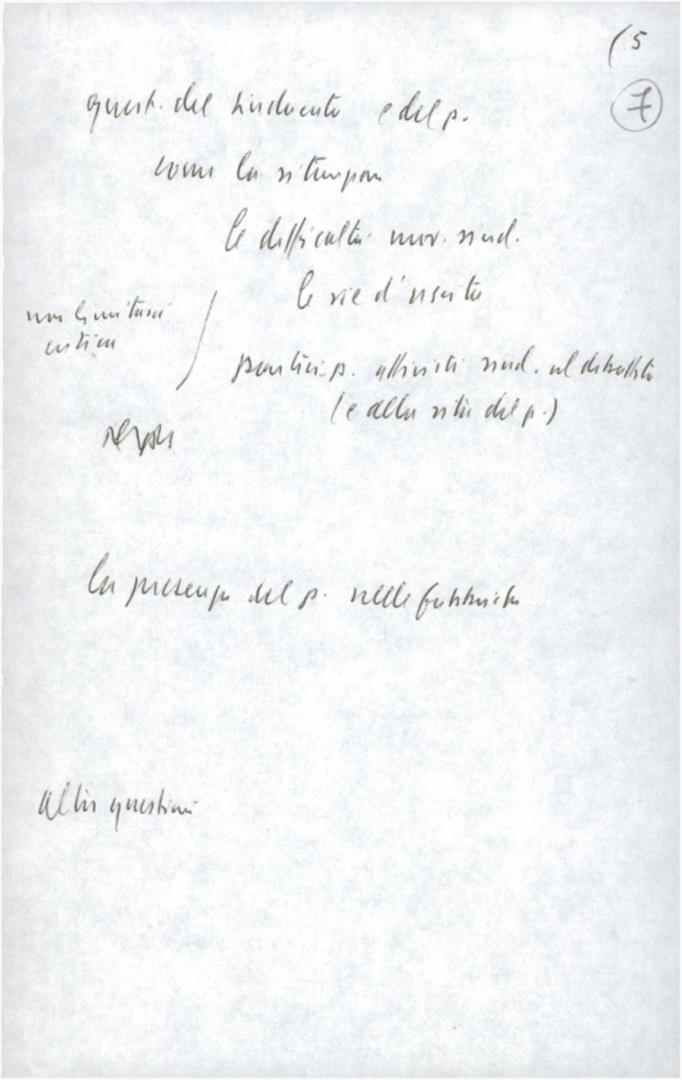 (5
7
quest. del sindacato e del p.
come la situazione
le difficoltà mov. sind.
le vie d'uscita
non limitarsi
critica
partecip. attivisti sind. al dibattito
(e alla vita del p.)
la presenza del p. nelle fabbriche
Altre questioni